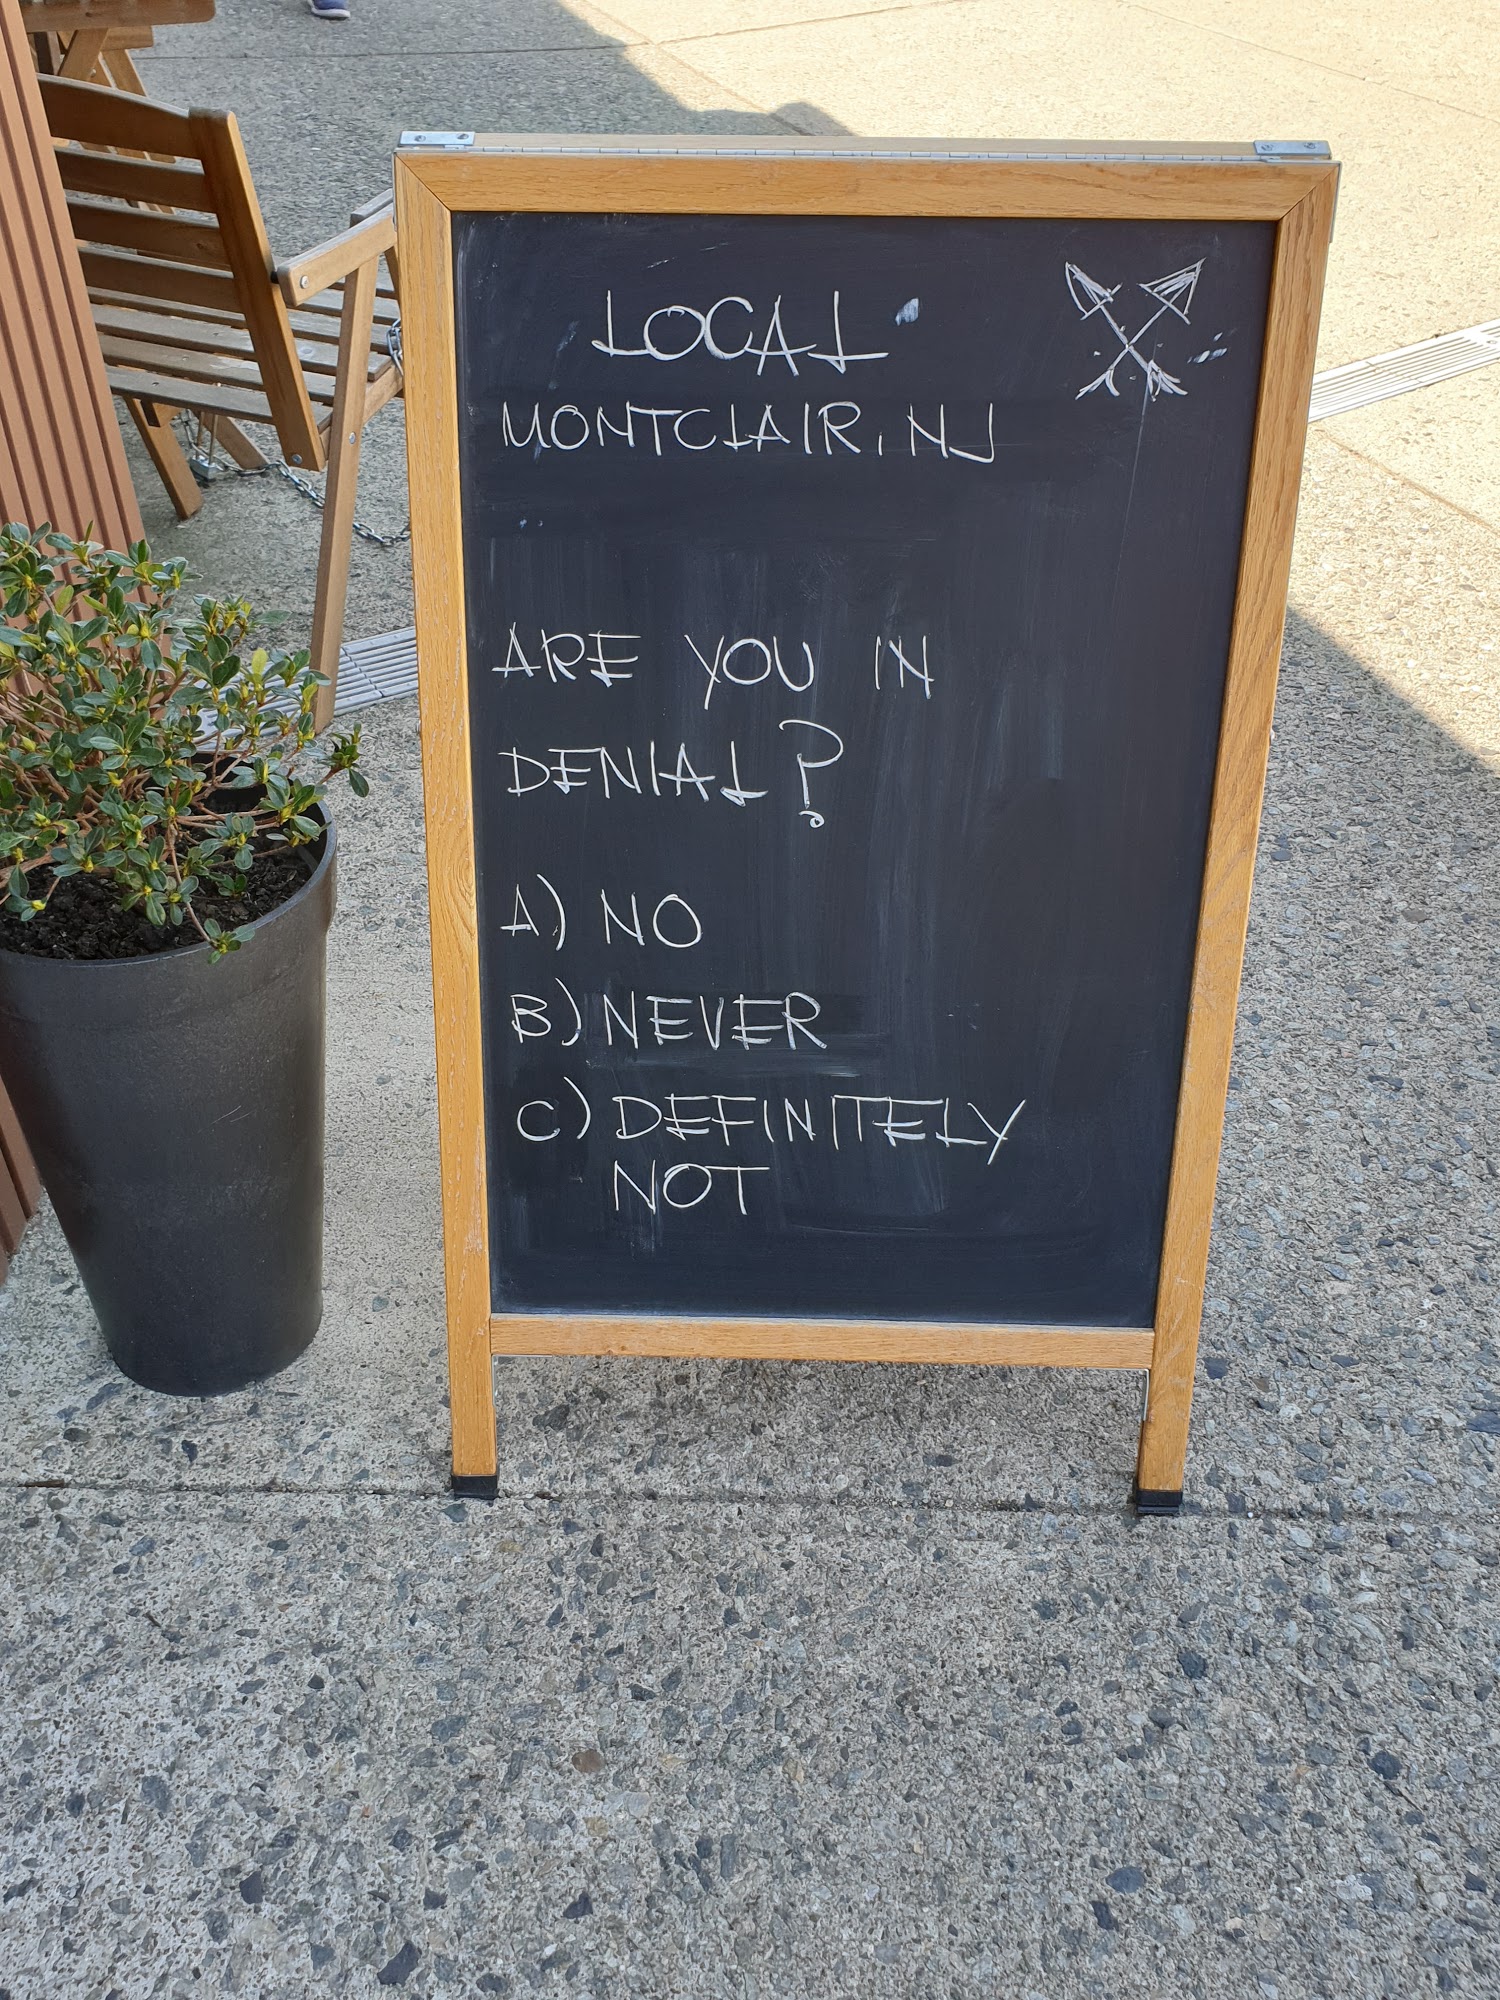 LOCAL
MONTCLAIR, NJ
ARE YOU IN
DENIAL?
A) NO
B) NEVER
C) DEFINITELY
NOT